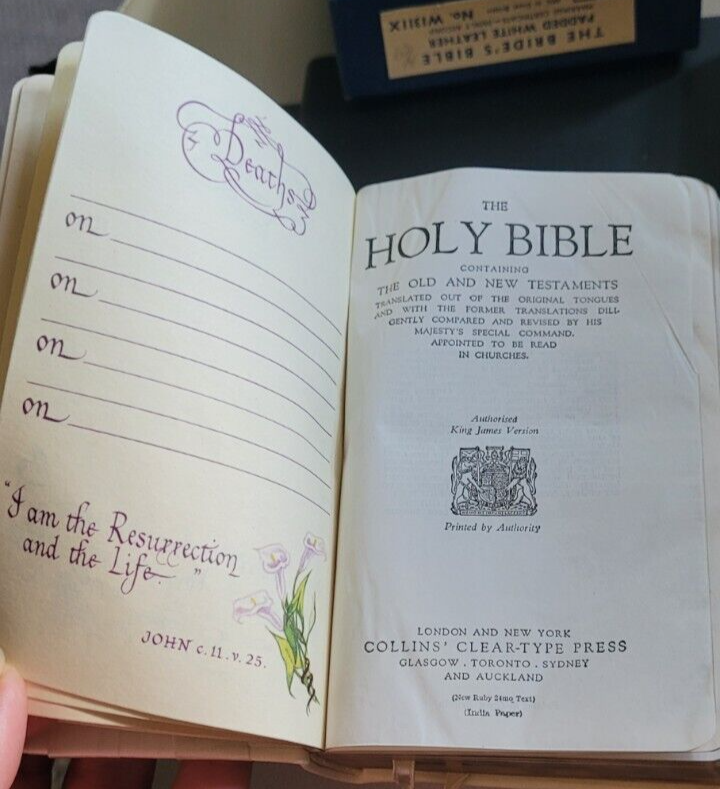 THE BRIDE'S BIBLE
PADDED WHITE LEATHER
No. W1311X
Deaths
on
on
on
on
"I am the Resurrection
and the Life."
JOHN c. 11. v. 25.
THE
HOLY BIBLE
CONTAINING
THE OLD AND NEW TESTAMENTS
TRANSLATED OUT OF THE ORIGINAL TONGUES
AND WITH THE FORMER TRANSLATIONS DILI-
GENTLY COMPARED AND REVISED BY HIS
MAJESTY'S SPECIAL COMMAND.
APPOINTED TO BE READ
IN CHURCHES.
Authorised
King James Version
Printed by Authority
LONDON AND NEW YORK
COLLINS' CLEAR-TYPE PRESS
GLASGOW . TORONTO . SYDNEY
AND AUCKLAND
(New Ruby 24mo Text)
(India Paper)